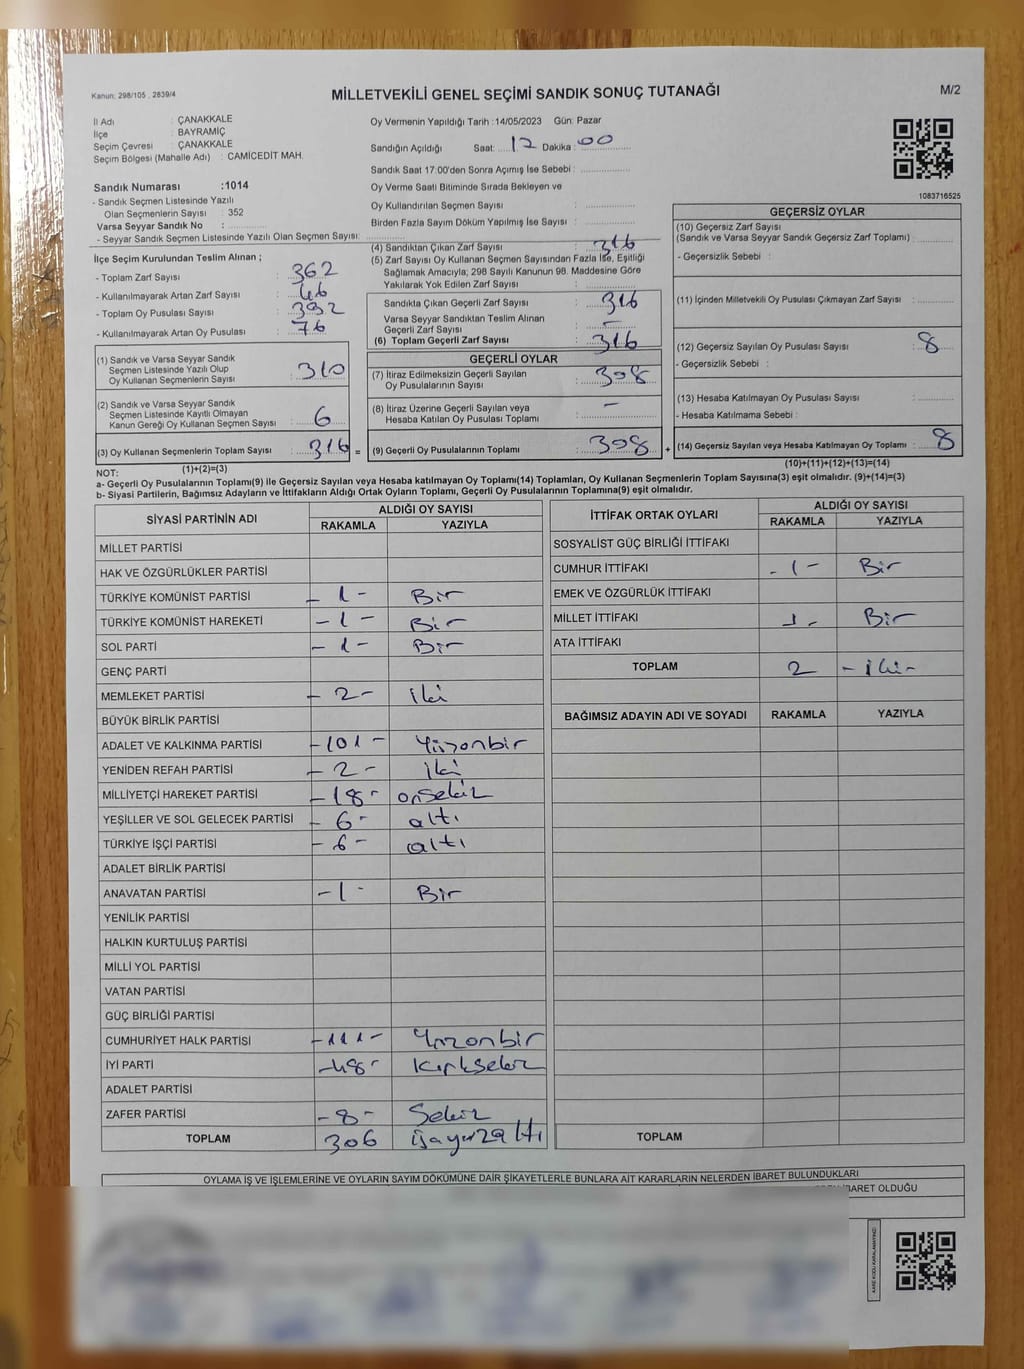 Kanun: 298/105 , 2839/4
MİLLETVEKİLİ GENEL SEÇİMİ SANDIK SONUÇ TUTANAĞI
M/2
İl Adı : ÇANAKKALE
İlçe : BAYRAMİÇ
Seçim Çevresi : ÇANAKKALE
Seçim Bölgesi (Mahalle Adı) : CAMİCEDİT MAH.
Sandık Numarası :1014
- Sandık Seçmen Listesinde Yazılı
Olan Seçmenlerin Sayısı : 352
Varsa Seyyar Sandık No :
- Seyyar Sandık Seçmen Listesinde Yazılı Olan Seçmen Sayısı:
Oy Vermenin Yapıldığı Tarih :14/05/2023 Gün: Pazar
Sandığın Açıldığı Saat: 17 Dakika : 00
Sandık Saat 17:00'den Sonra Açımış İse Sebebi :
Oy Verme Saati Bitiminde Sırada Bekleyen ve
Oy Kullandırılan Seçmen Sayısı :
Birden Fazla Sayım Döküm Yapılmış İse Sayısı :
1083716525
İlçe Seçim Kurulundan Teslim Alınan ;
- Toplam Zarf Sayısı : 362
- Kullanılmayarak Artan Zarf Sayısı : 46
- Toplam Oy Pusulası Sayısı : 392
- Kullanılmayarak Artan Oy Pusulası : 76
(1) Sandık ve Varsa Seyyar Sandık
Seçmen Listesinde Yazılı Olup
Oy Kullanan Seçmenlerin Sayısı : 310
(2) Sandık ve Varsa Seyyar Sandık
Seçmen Listesinde Kayıtlı Olmayan
Kanun Gereği Oy Kullanan Seçmen Sayısı : 6
(3) Oy Kullanan Seçmenlerin Toplam Sayısı : 316 =
(4) Sandıktan Çıkan Zarf Sayısı : 316
(5) Zarf Sayısı Oy Kullanan Seçmen Sayısından Fazla İse, Eşitliği
Sağlamak Amacıyla; 298 Sayılı Kanunun 98. Maddesine Göre
Yakılarak Yok Edilen Zarf Sayısı :
Sandıkta Çıkan Geçerli Zarf Sayısı : 316
Varsa Seyyar Sandıktan Teslim Alınan
Geçerli Zarf Sayısı : -
(6) Toplam Geçerli Zarf Sayısı : 316
GEÇERLİ OYLAR
(7) İtiraz Edilmeksizin Geçerli Sayılan
Oy Pusulalarının Sayısı : 308
(8) İtiraz Üzerine Geçerli Sayılan veya
Hesaba Katılan Oy Pusulası Toplamı : -
(9) Geçerli Oy Pusulalarının Toplamı : 308 +
GEÇERSİZ OYLAR
(10) Geçersiz Zarf Sayısı
(Sandık ve Varsa Seyyar Sandık Geçersiz Zarf Toplamı) :
- Geçersizlik Sebebi :
(11) İçinden Milletvekili Oy Pusulası Çıkmayan Zarf Sayısı :
(12) Geçersiz Sayılan Oy Pusulası Sayısı : 8
- Geçersizlik Sebebi :
(13) Hesaba Katılmayan Oy Pusulası Sayısı :
- Hesaba Katılmama Sebebi :
(14) Geçersiz Sayılan veya Hesaba Katılmayan Oy Toplamı : 8
NOT: (1)+(2)=(3) (10)+(11)+(12)+(13)=(14)
a- Geçerli Oy Pusulalarının Toplamı(9) ile Geçersiz Sayılan veya Hesaba katılmayan Oy Toplamı(14) Toplamları, Oy Kullanan Seçmenlerin Toplam Sayısına(3) eşit olmalıdır. (9)+(14)=(3)
b- Siyasi Partilerin, Bağımsız Adayların ve İttifakların Aldığı Ortak Oyların Toplamı, Geçerli Oy Pusulalarının Toplamına(9) eşit olmalıdır.
SİYASİ PARTİNİN ADI ALDIĞI OY SAYISI
RAKAMLA YAZIYLA
MİLLET PARTİSİ
HAK VE ÖZGÜRLÜKLER PARTİSİ
TÜRKİYE KOMÜNİST PARTİSİ - 1 - Bir
TÜRKİYE KOMÜNİST HAREKETİ - 1 - Bir
SOL PARTİ - 1 - Bir
GENÇ PARTİ
MEMLEKET PARTİSİ - 2 - iki
BÜYÜK BİRLİK PARTİSİ
ADALET VE KALKINMA PARTİSİ - 101 - Yüzonbir
YENİDEN REFAH PARTİSİ - 2 - iki
MİLLİYETÇİ HAREKET PARTİSİ - 18 - onsekiz
YEŞİLLER VE SOL GELECEK PARTİSİ - 6 - altı
TÜRKİYE İŞÇİ PARTİSİ - 6 - altı
ADALET BİRLİK PARTİSİ
ANAVATAN PARTİSİ - 1 - Bir
YENİLİK PARTİSİ
HALKIN KURTULUŞ PARTİSİ
MİLLİ YOL PARTİSİ
VATAN PARTİSİ
GÜÇ BİRLİĞİ PARTİSİ
CUMHURİYET HALK PARTİSİ - 111 - Yüzonbir
İYİ PARTİ - 48 - Kırksekiz
ADALET PARTİSİ
ZAFER PARTİSİ - 8 - Sekiz
TOPLAM 306 üçyüzaltı
İTTİFAK ORTAK OYLARI ALDIĞI OY SAYISI
RAKAMLA YAZIYLA
SOSYALİST GÜÇ BİRLİĞİ İTTİFAKI
CUMHUR İTTİFAKI - 1 - Bir
EMEK VE ÖZGÜRLÜK İTTİFAKI
MİLLET İTTİFAKI 1 - Bir
ATA İTTİFAKI
TOPLAM 2 - iki -
BAĞIMSIZ ADAYIN ADI VE SOYADI RAKAMLA YAZIYLA
TOPLAM
OYLAMA İŞ VE İŞLEMLERİNE VE OYLARIN SAYIM DÖKÜMÜNE DAİR ŞİKAYETLERLE BUNLARA AİT KARARLARIN NELERDEN İBARET BULUNDUKLARI
İBARET OLDUĞU
KARE KODU KARALAMAYINIZ!